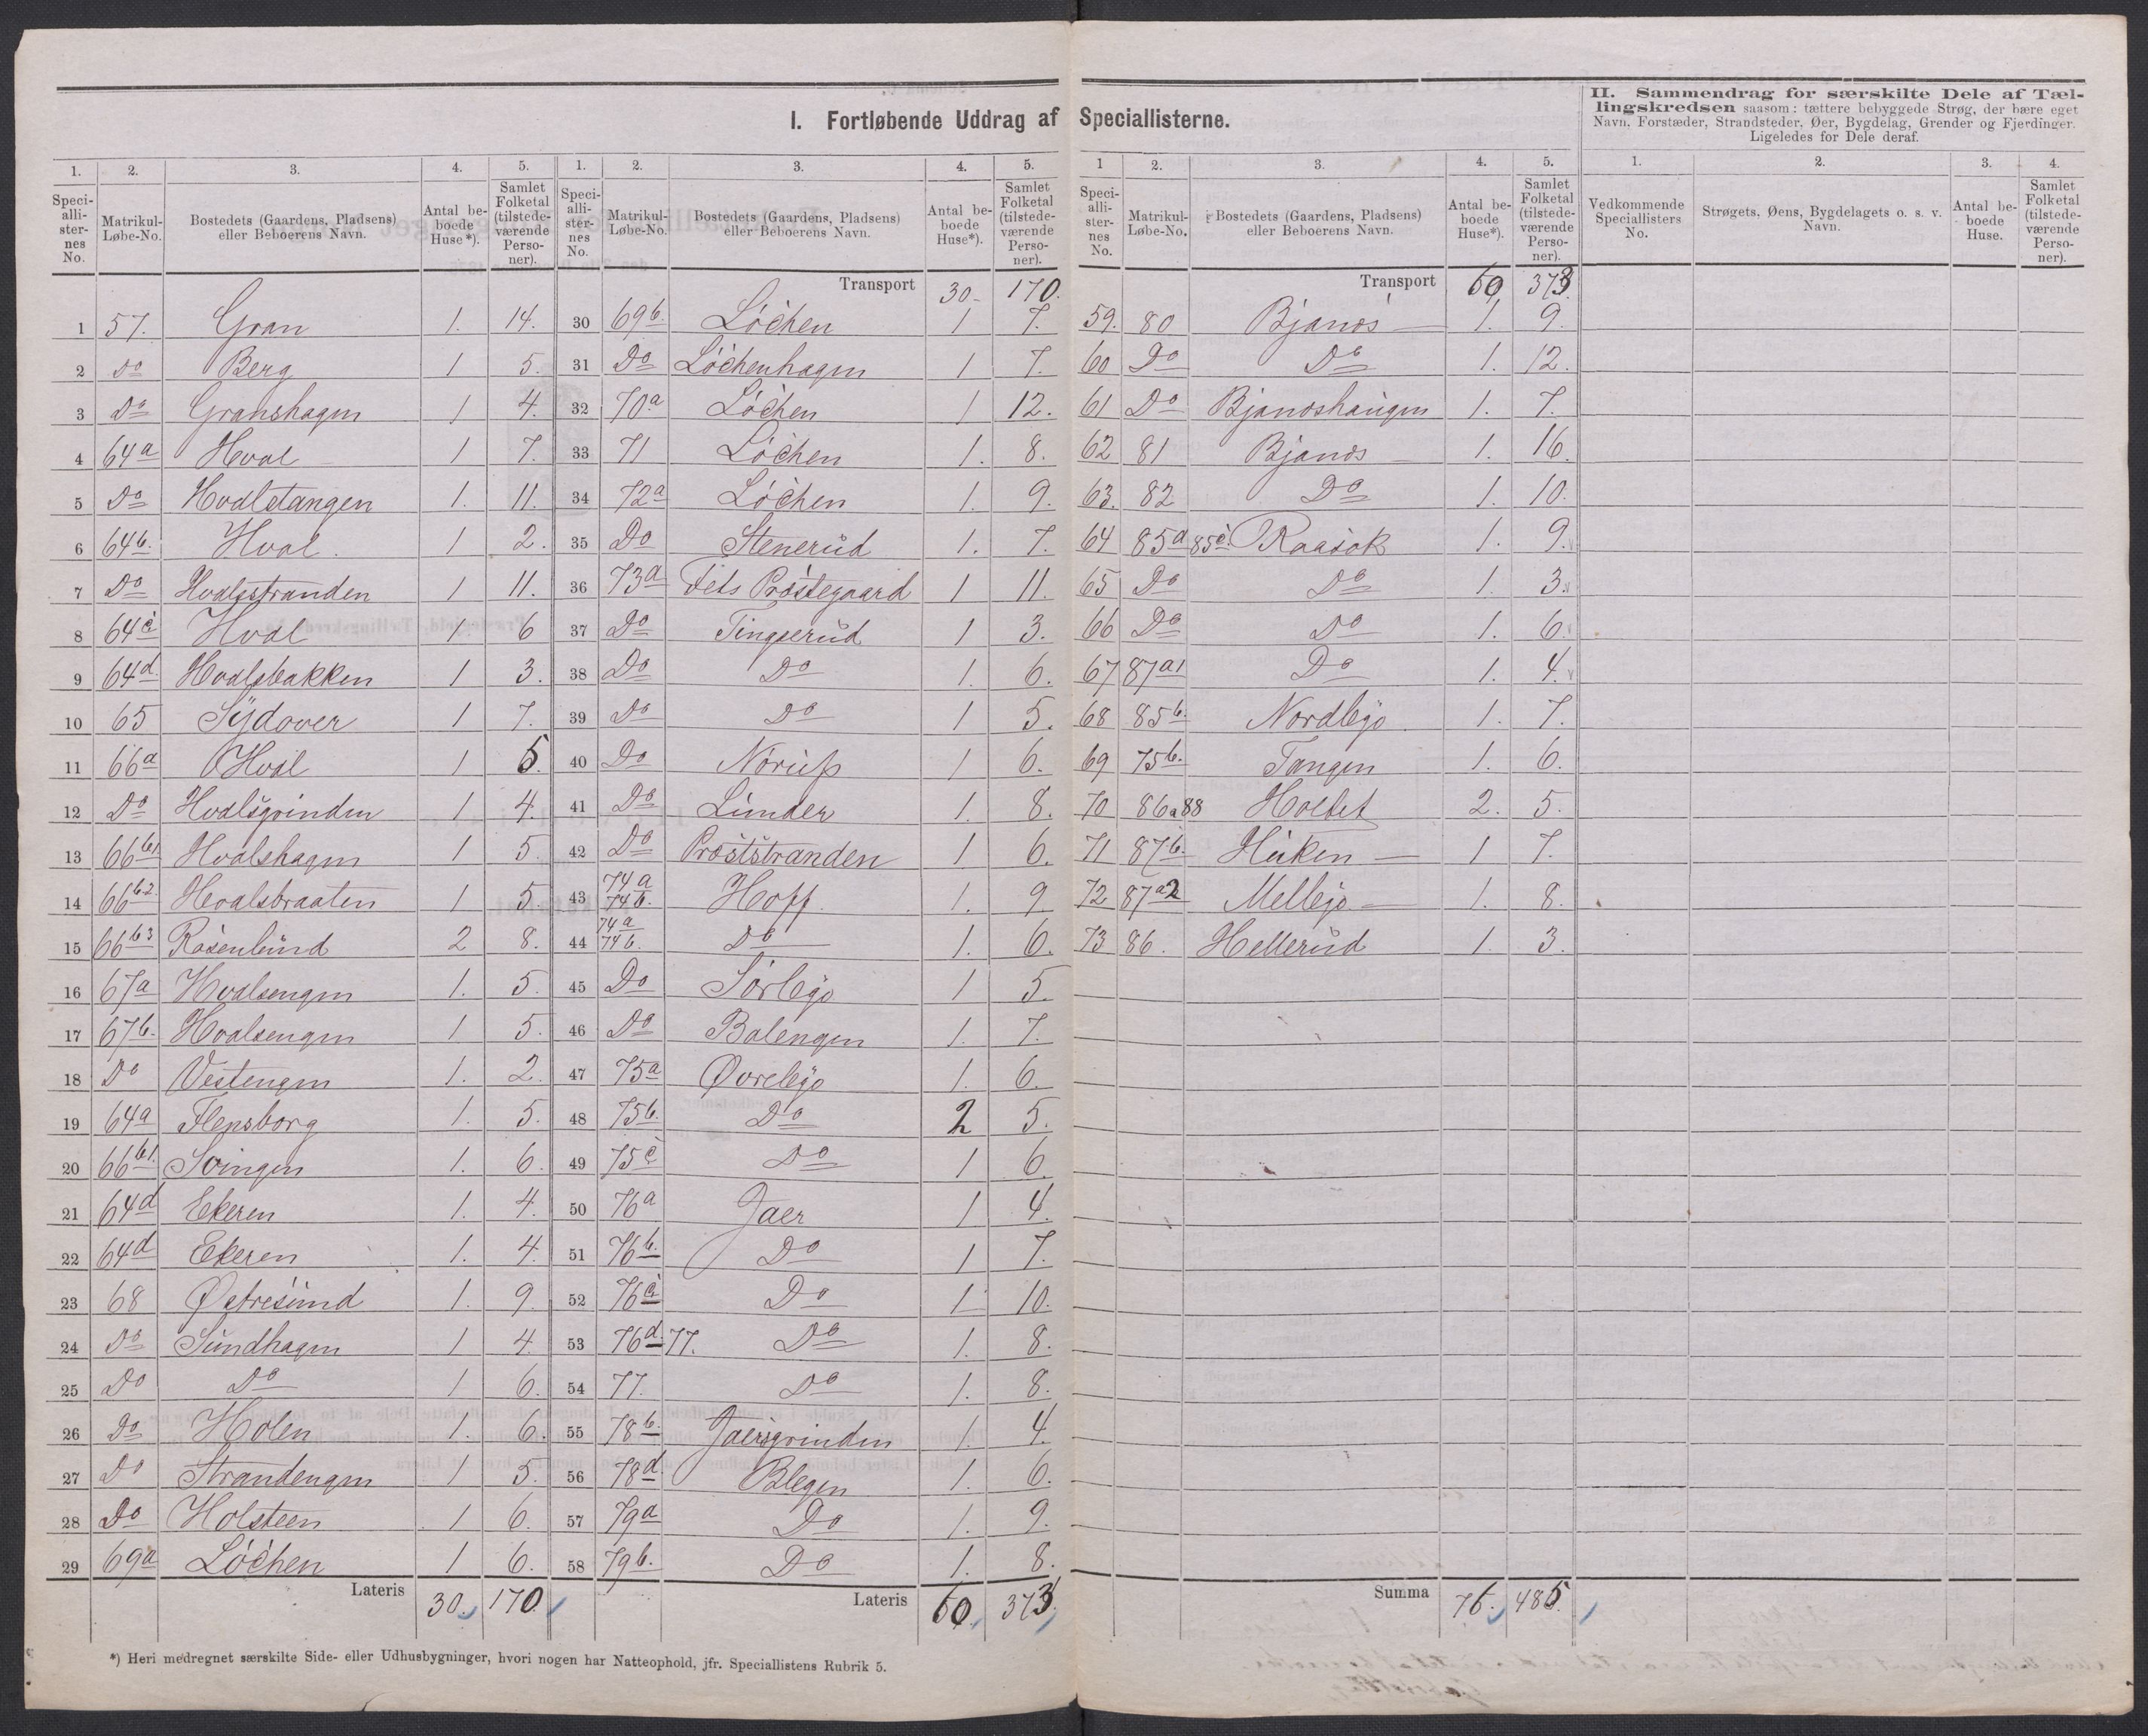 I. Fortløbende Uddrag af Speciallisterne.
II. Sammendrag for særskilte Dele af Tæl-
lingskredsen saasom: tættere bebyggede Strøg, der bære eget
Navn, Forstæder, Strandsteder, Øer, Bygdelag, Grender og Fjerdinger.
Ligeledes for Dele deraf.
1. 2. 3. 4. 5.
Speci-alli-ster-nes No. Matrikul-Løbe-No. Bostedets (Gaardens, Pladsens) eller Beboerens Navn. Antal be-boede Huse*). Samlet Folketal (tilstede-værende Perso-ner).
1 57. Gran 1. 14.
2 Do Berg 1 5.
3 Do Granshagen 1 4.
4 64a Hval 1 7.
5 Do Hvalstangen 1. 11.
6 64b. Hval. 1 2.
7 Do Hvalsstranden 1 11.
8 64c Hval 1 6
9 64d Hvalsbakken 1 3.
10 65 Sydover 1 7.
11 66a Hval 1 5.
12 Do Hvalsgrinden 1 4.
13 66b1 Hvalshagen 1 5
14 66b2 Hvalsbraaten 1 5
15 66b3 Rosenlund 2 8.
16 67a Hvalsengen 1. 5.
17 67b. Hvalsengen 1 5.
18 Do Vestengen 1. 2.
19 64a Flensborg 1. 5.
20 66b1. Svingen 1. 6.
21 64d Ekeren 1. 4.
22 64d Ekeren 1. 4.
23 68 Østresund 1. 9.
24 Do Sundhagen 1 4.
25 Do Do 1 6.
26 Do Holen 1. 6.
27 Do Strandengen 1 5.
28 Do Holsteen 1 6.
29 69a Löchen 1 6.
Lateris 30. 170.
1. 2. 3. 4. 5.
Speci-alli-ster-nes No. Matrikul-Løbe-No. Bostedets (Gaardens, Pladsens) eller Beboerens Navn. Antal be-boede Huse*). Samlet Folketal (tilstede-værende Perso-ner).
Transport 30- 170.
30 69b. Löchen 1 7.
31 Do Löchenhagen 1 7.
32 70.a Löchen 1 12.
33 71 Löchen 1. 8.
34 72a Löchen 1. 9.
35 Do Stenerud 1. 7.
36 73a Fets Præstegaard 1 11.
37 Do Tingserud 1 3.
38 Do Do 1. 6.
39 Do Do 1 5.
40 Do 1 6.
41 Do Lunder 1. 8.
42 Do Præststranden 1 6.
43 74a 74b. Hoff. 1. 9
44 74a 74b. Do 1. 6.
45 Do Sörlejo 1 5.
46 Do Balengen 1. 7.
47 75a Øvrelejo 1. 6.
48 75b. Do 2 5.
49 75c Do 1 6
50 76a Jaer 1 4.
51 76b. Do 1 7.
52 76c Do 1 10.
53 76d. 77. Do 1. 8.
54 77. Do 1. 8.
55 78b. Jaersgrinden 1. 4.
56 78d. Blegen 1. 6.
57 79a Do 1. 9.
58 79b. Do 1. 8.
Lateris 60. 373.
1 2. 3. 4. 5.
Speci-alli-ster-nes No. Matrikul-Løbe-No. Bostedets (Gaardens, Pladsens) eller Beboerens Navn. Antal be-boede Huse*). Samlet Folketal (tilstede-værende Perso-ner).
Transport 60 373.
59. 80 Bjanæs 1. 9.
60 Do Do 1. 12.
61 Do Bjanæshaugen 1. 7.
62 81 Bjanæs 1. 16.
63. 82 Do 1. 10.
64 85a 85c. Raasok 1. 9.
65 Do Do 1. 3.
66 Do Do 1. 6.
67 87a1 Do 1. 4.
68 85b. Nordlejo 1. 7.
69 75b. Tangen 1. 6.
70 86a88 Holtet 2. 5.
71 87b. Huken 1 7.
72 87a2 Mellejo 1. 8.
73 86. Hellerud 1. 3.
Summa 76. 485.
1. 2. 3. 4.
Vedkommende Speciallisters No. Strøgets, Øens, Bygdelagets o. s. v. Navn. Antal be-boede Huse. Samlet Folketal (tilstede-værende Perso-ner).
*) Heri medregnet særskilte Side- eller Udhusbygninger, hvori nogen har Natteophold, jfr. Speciallistens Rubrik 5.